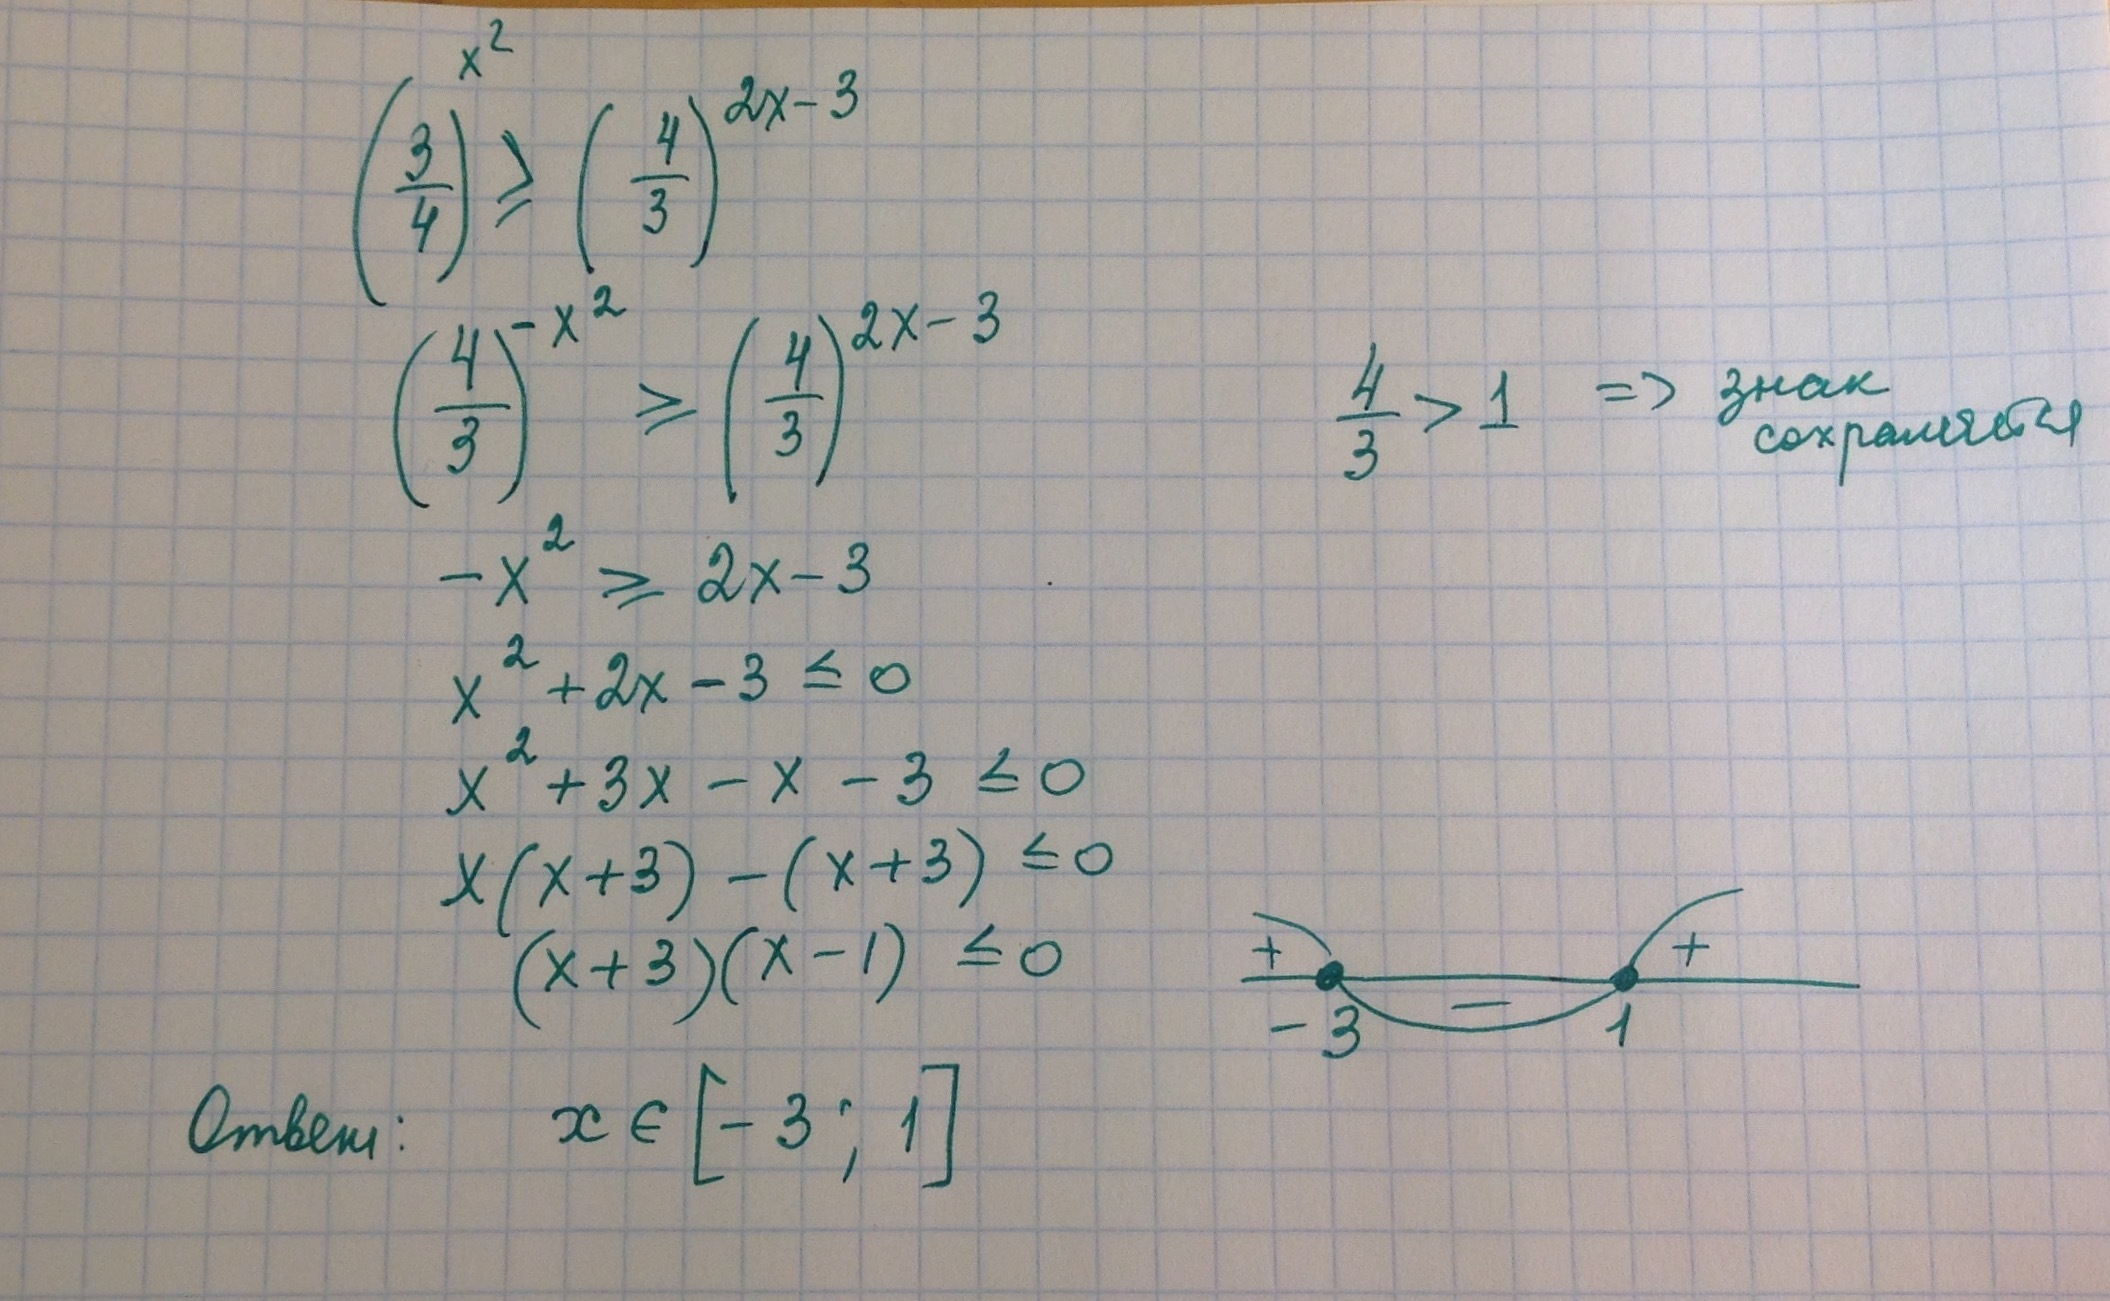 (3/4)^x² ⩾ (4/3)^2x-3
(4/3)^-x² ⩾ (4/3)^2x-3
4/3 > 1 => знак
сохраняется
-x² ⩾ 2x-3
x² + 2x - 3 ≤ 0
x² + 3x - x - 3 ≤ 0
x(x+3) - (x+3) ≤ 0
(x+3)(x-1) ≤ 0
+ - +
-3 1
Ответ: x ∈ [-3; 1]